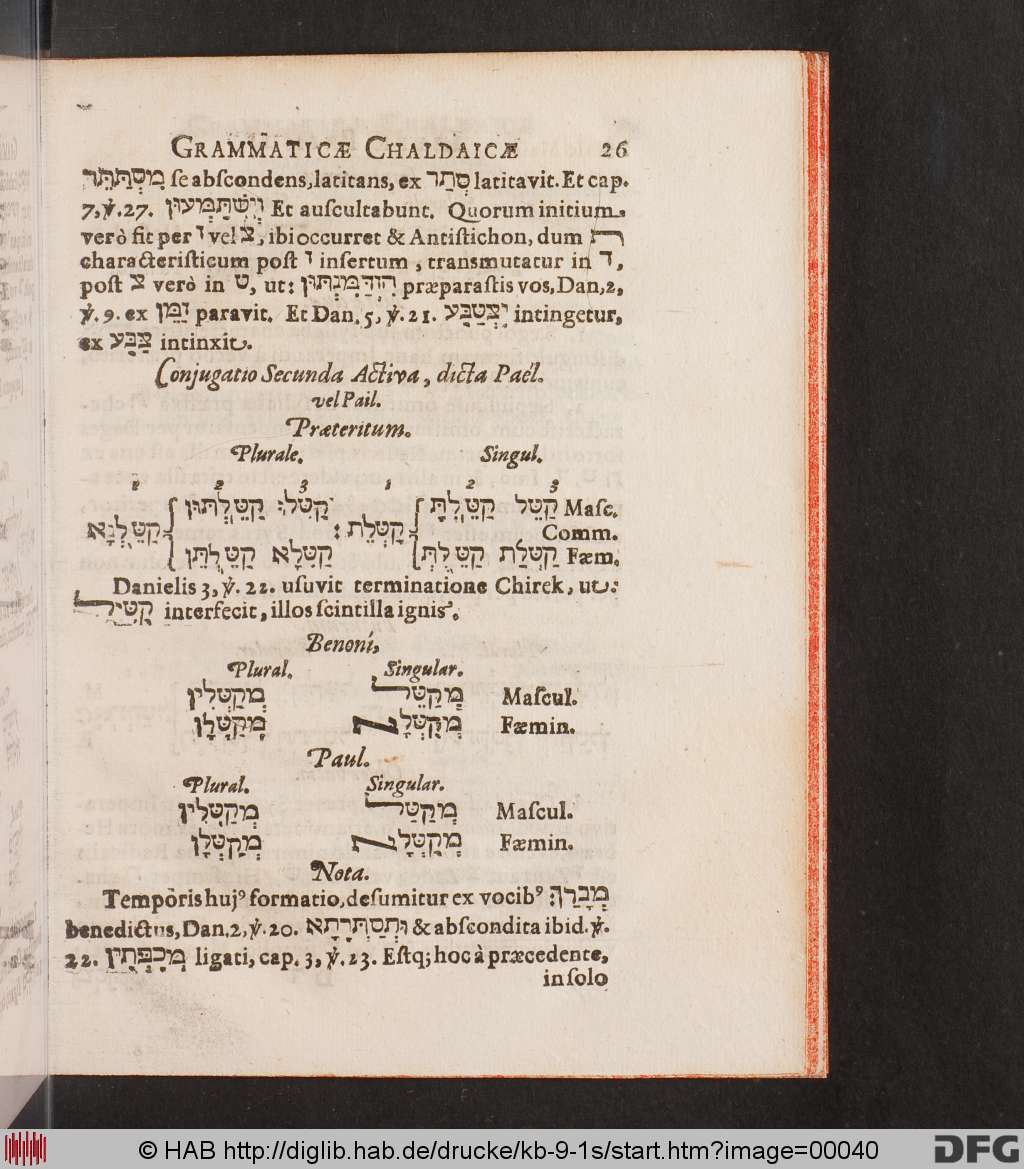 GRAMMATICÆ CHALDAICÆ 26
מִסְתַּתֵּר se abſcondens, latitans, ex סְתַר latitavit. Et cap.
7, ℣. 27. וְיִשְׁתַּמְּעוּן Et auſcultabunt. Quorum initium
verò fit per ו vel צ, ibi occurret & Antiſtichon, dum ת
characteriſticum poſt ו inſertum, transmutatur in ד,
poſt צ verò in ט, ut: præparaſtis vos, Dan, 2,
℣. 9. ex זַמֵּן paravit. Et Dan. 5, ℣. 21. יִצְטַבַּע intingetur,
ex צַבַּע intinxit.
Conjugatio Secunda Activa, dicta Paël.
vel Pail.
Præteritum.
Plurale. Singul.
1 2 3 1 2 3
קַטֵּל קַטֵּלְתָּ קַטִּלוּ קַטֵּלְתּוּן Maſc.
קַטְּלֵת : קַטֵּלְנָא Comm.
קַטְּלַת קַטֵּלְתְּ קַטִּלָא קַטֵּלְתֵּן Fæm.
Danielis 3, ℣. 22. uſuvit terminatione Chirek, ut:
קַטִּיל interfecit, illos ſcintilla ignis.
Benoni,
Plural. Singular.
מְקַטְּלִין מְקַטֵּל Maſcul.
מְקַטְּלָן מְקַטְּלָה Fæmin.
Paul.
Plural. Singular.
מְקַטְּלִין מְקַטַּל Maſcul.
מְקַטְּלָן מְקַטְּלָה Fæmin.
Nota.
Temporis hujꝰ formatio, deſumitur ex vocibꝰ מְבָרַךְ:
benedictus, Dan. 2, ℣. 20. וּמְסַתְּרָתָא & abſcondita ibid. ℣.
22. מְכַפְּתִין ligati, cap. 3, ℣. 23. Eſtq; hoc à præcedente,
in ſolo
© HAB http://diglib.hab.de/drucke/kb-9-1s/start.htm?image=00040
DFG